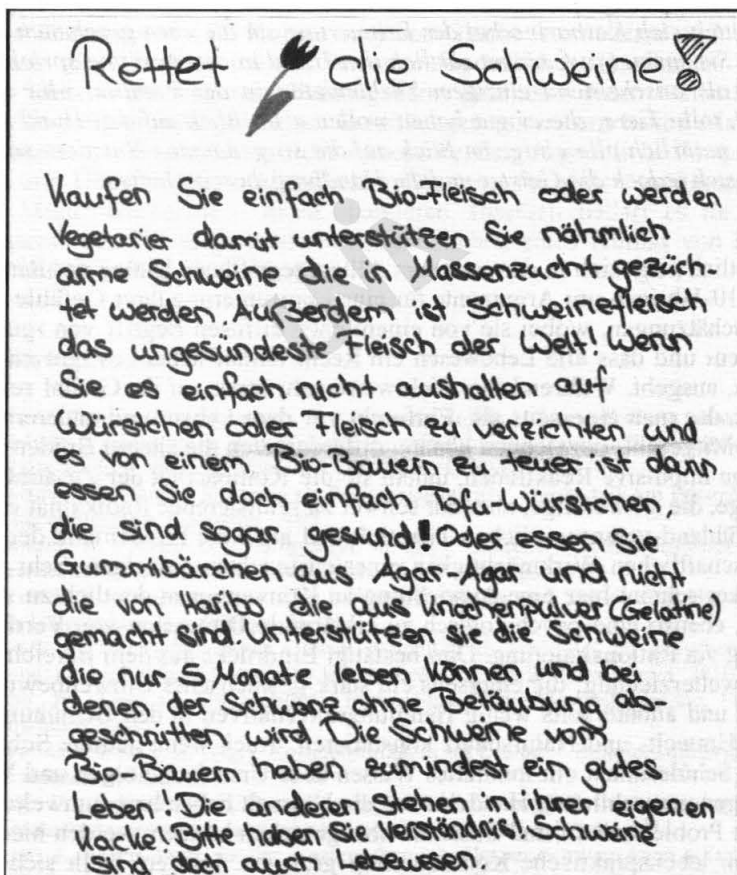 Rettet die Schweine!
Kaufen Sie einfach Bio-Fleisch oder werden
Vegetarier damit unterstützen Sie nähmlich
arme Schweine die in Massenzucht gezüch-
tet werden. Außerdem ist Schweinefleisch
das ungesündeste Fleisch der Welt! Wenn
Sie es einfach nicht aushalten auf
Würstchen oder Fleisch zu verzichten und
es von einem Bio-Bauern zu teuer ist dann
essen Sie doch einfach Tofu-Würstchen,
die sind sogar gesund! Oder essen Sie
Gummibärchen aus Agar-Agar und nicht
die von Haribo die aus Knochenpulver (Gelatine)
gemacht sind. Unterstützen sie die Schweine,
die nur 5 Monate leben können und bei
denen der Schwanz ohne Betäubung ab-
geschnitten wird. Die Schweine vom
Bio-Bauern haben zumindest ein gutes
Leben! Die anderen stehen in ihrer eigenen
Kacke! Bitte haben Sie Verständnis! Schweine
sind doch auch Lebewesen.